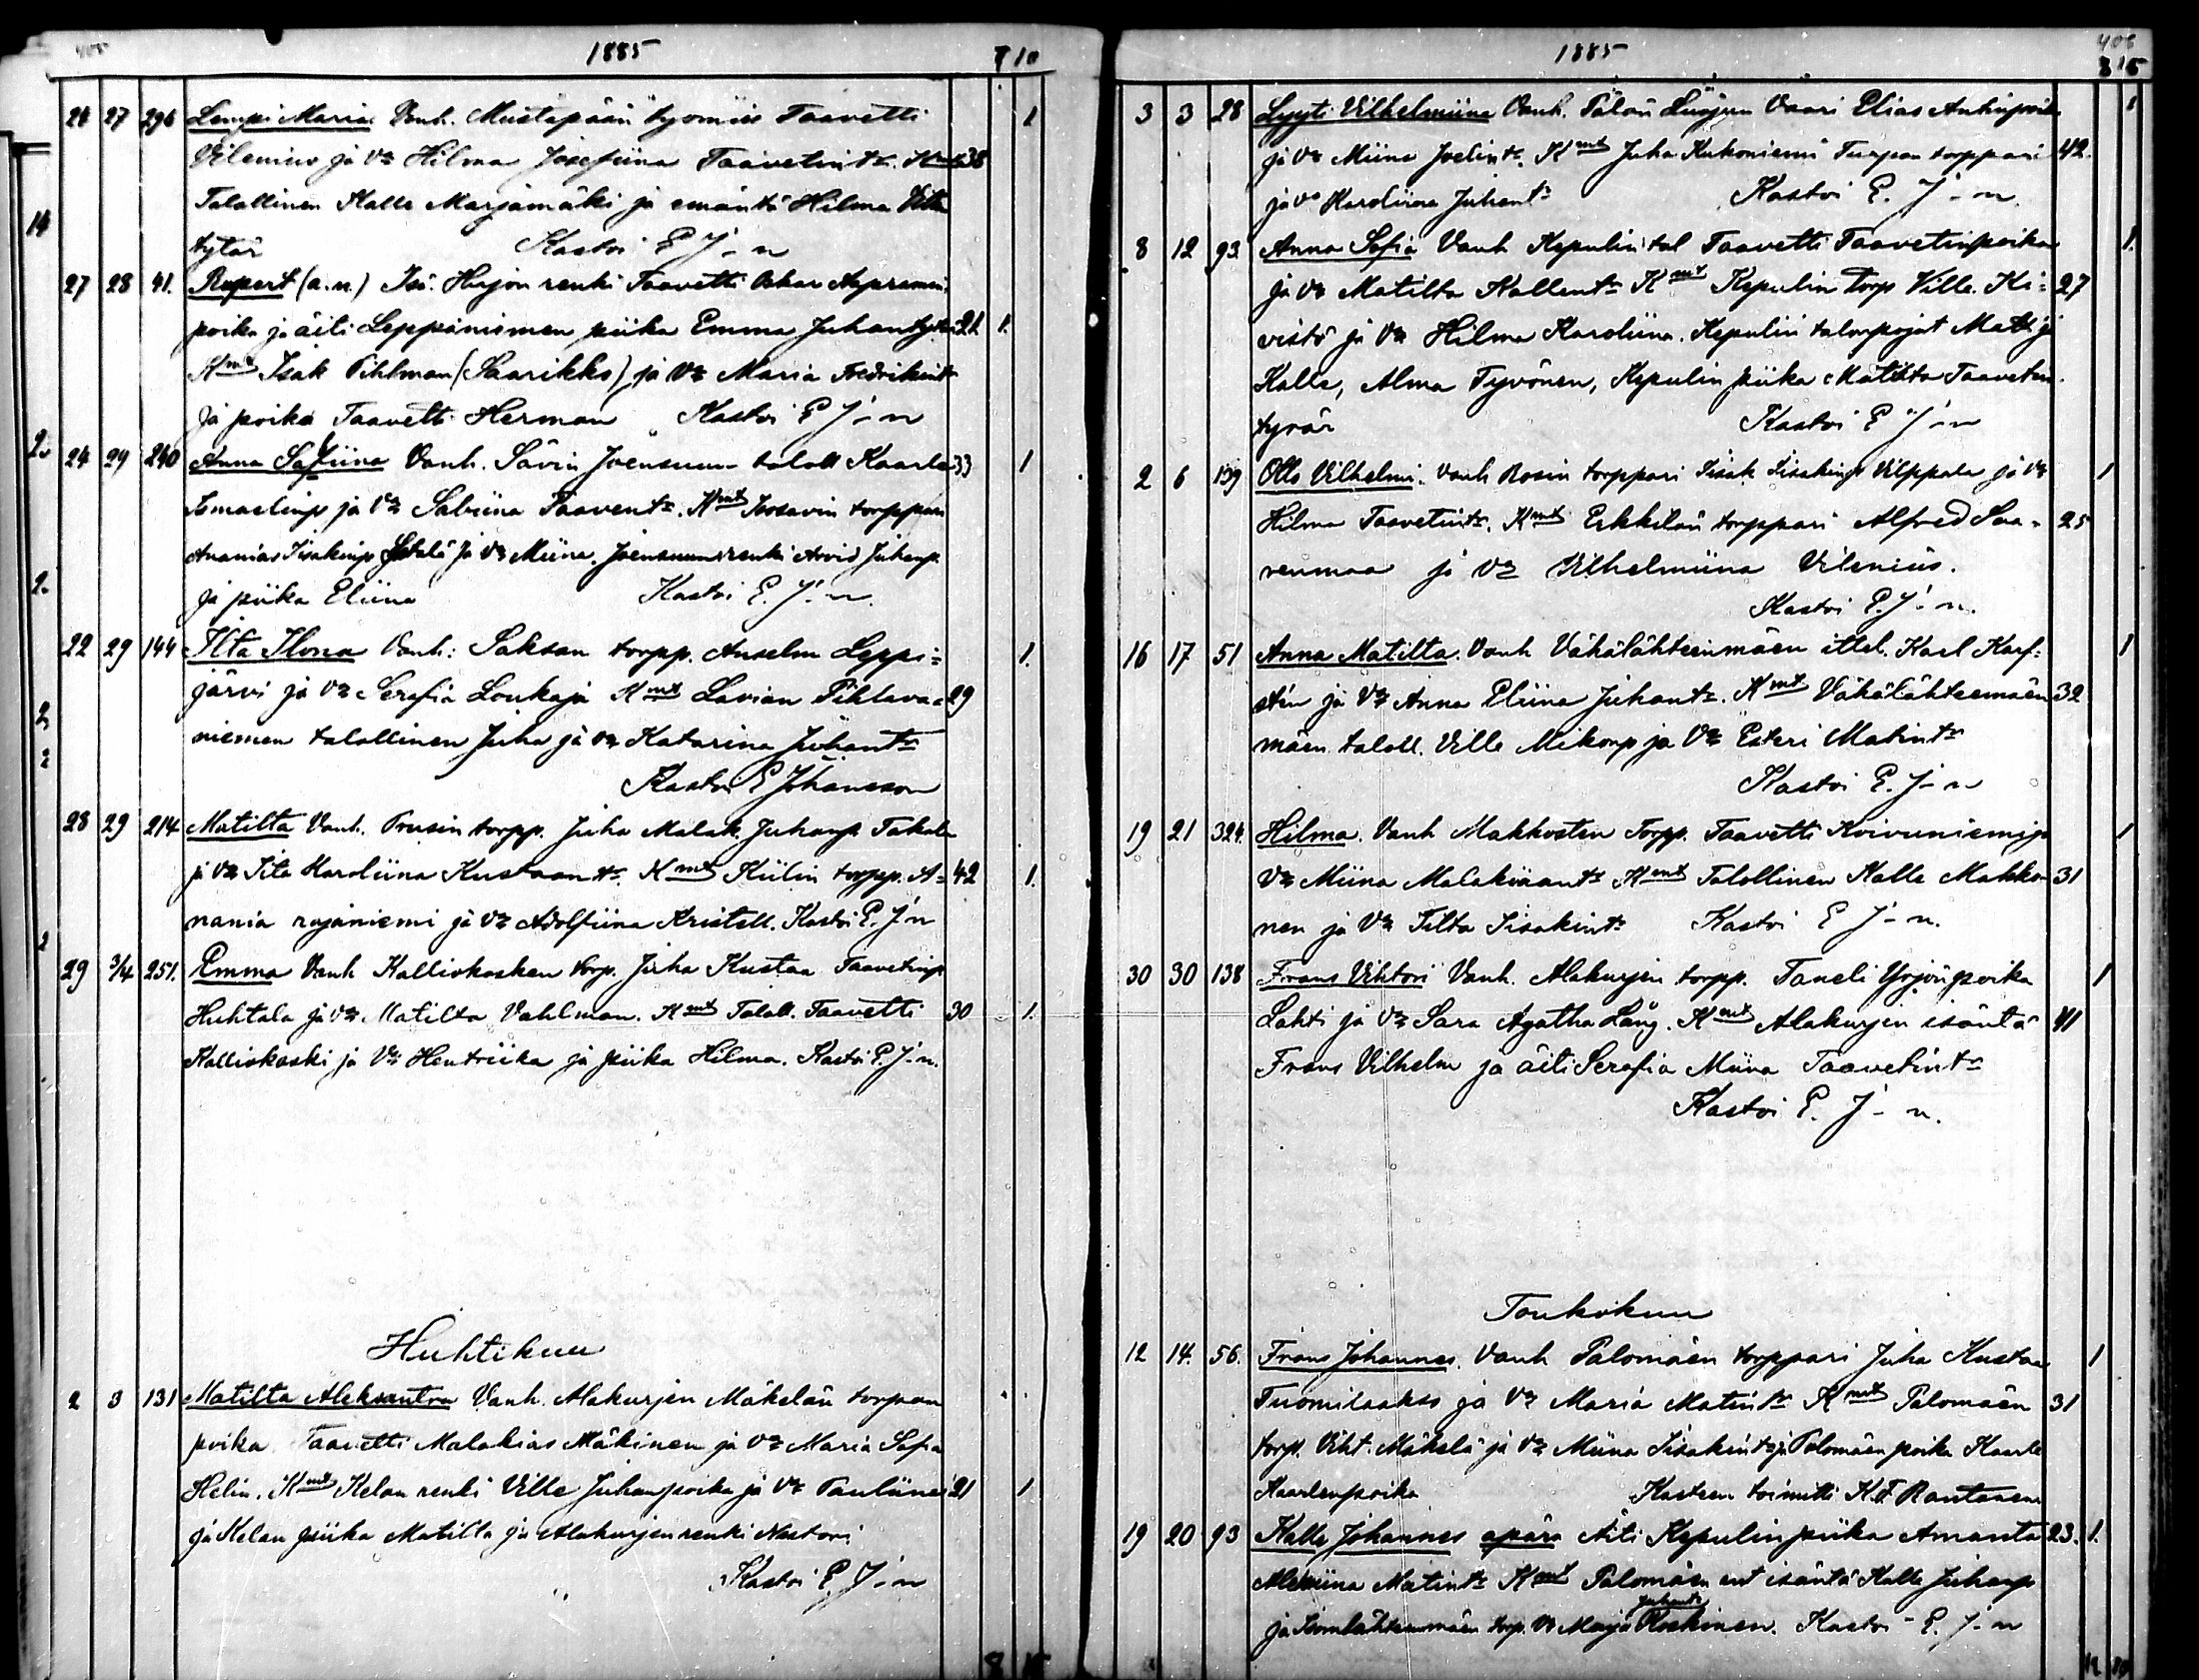 405 1885 7 10
24 27 296 Lempi Maria Vanh. Mustapään työmies Taavetti 1
Vilenius ja Vo Hilma Josefiina Taavetintr. Kmt 38
Talollinen Kalle Marjamäki ja emäntä Hilma
tytär Kastoi E J-n
27 28 41. Rupert (a.n.) Isä: Hirjon renki Taavetti Oskar
poika ja äiti Leppäniemen piika Emma Juhantytär 21. 1.
Kmt Isak Pihlman (Saarikko) ja Vo Maria Fredrikintr
ja poika Taavetti Herman Kastoi E J-n
24 29 240 Anna Safiina Vanh. Sävin Joensuun taloll Kaarle 33 1
Ismaelinp ja Vo Sabiina Taavetintr. Kmt Isosavin torppari
Ananias Iisakinp ja Vo Miina. Joensuun renki Arvid Juhanp
ja piika Eliina Kastoi E. J-n.
22 29 144 Ilta Ilona Vanh: Saksan torpp. Anselm Leppi= 1.
järvi ja Vo Serafia Loukaja Kmt Lavian Pihlava= 29
niemen talollinen Juha ja Vo Katarina Juhantr
Kastoi E Johansson
28 29 214 Matilta Vanh. Prusin torpp. Juha Malak. Juhanp Takala
ja Vo Iita Karoliina Kustaantr. Kmt Kiilin torpp. A= 42 1.
nania rajaniemi ja Vo Adolfiina Kristell. Kastoi E. J-n
29 3/4 251. Emma Vanh Kalliokosken torp. Juha Kustaa Taavetinp
Huhtala ja Vo Matilta Vahlman. Kmt Taloll. Taavetti 30 1.
Kalliokoski ja Vo Hentriika ja piika Hilma. Kastoi E. J-n.
Huhtikuu
2 3 131 Matilta Aleksantra Vanh. Alakurjen Mäkelän torpan
poika Taavetti Malakias Mäkinen ja Vo Maria Sofia
Helin. Kmt Kelan renki Ville Juhanpoika ja Vo Pauliina 21 1
ja Kelan piika Matilta ja Alakurjen renki Nestori
Kastoi E. J-n
1885 406
3 3 28 Lyyti Vilhelmiina Vanh. Vaari Elias Antinpoika 1
ja Vo Miina Joelintr. Kmt Juha Kukoniemi Turpan torppari 42.
ja Vo Karoliina Juhantr Kastoi E. J-n.
8 12 93. Anna Sofia Vanh Kepulin tal Taavetti Taavetinpoika 1.
ja Vo Matilta Kallentr Kmt Kepulin torp Ville. Ki= 27
vistö ja Vo Hilma Karoliina. Kepulin talonpojat Matti ja
Kalle, Alma Tyvönen, Kepulin piika Matilta Taavetin
tyrär Kastoi E J-n
2 6 139 Otto Vilhelmi. Vanh Rosin torppari Iisak Iisakinp Vilppala ja Vo 1
Hilma Taavetintr. Kmt Erkkilän torppari Alfred Saa= 25
renmaa ja Vo Vilhelmiina Vilenius.
Kastoi E. J-n.
16 17 51 Anna Matilta. Vanh Vähälähteenmäen ittel. Karl Karf= 1
stén ja Vo Anna Eliina Juhantr. Kmt Vähälähteemäen 32
mäen taloll. Ville Mikonp ja Vo Esteri Matintr
Kastoi E. J-n
19 21 324. Hilma. Vanh Makkosten Torpp. Taavetti Koivuniemi ja 1
Vo Miina Malakiaantr Kmt Talollinen Kalle Makko 31
nen ja Vo Tilta Iisakintr Kastoi E J-n.
30 30 138 Frans Vihtori Vanh. Alakurjen torpp. Taneli Yrjönpoika 1
Lahti ja Vo Sara Agatha Lång. Kmt Alakurjen isäntä 41
Frans Vilhelm ja äiti Serafia Miina Taavetintr
Kastoi E. J-n.
Toukokuu
12 14. 56. Frans Johannes. Vanh Palomäen torppari Juha Kustaa 1
Tuomilaakso ja Vo Maria Matintr Kmt Palomäen 31
torp. Viht. Mäkelä ja Vo Miina Iisakintr ja Palomäen poika Kaarle
Kaarlenpoika Kasteen toimitti K.F. Rantanen
19 20 93 Kalle Johannes äpärä Äiti Kepulin piika Amanta 23. 1.
Matintr Kmt Palomäen ent isäntä Kalle Juhanp
Juhantr
ja Isonlähteenmäen torp. Vo Maija Koskinen. Kastoi E. J-n